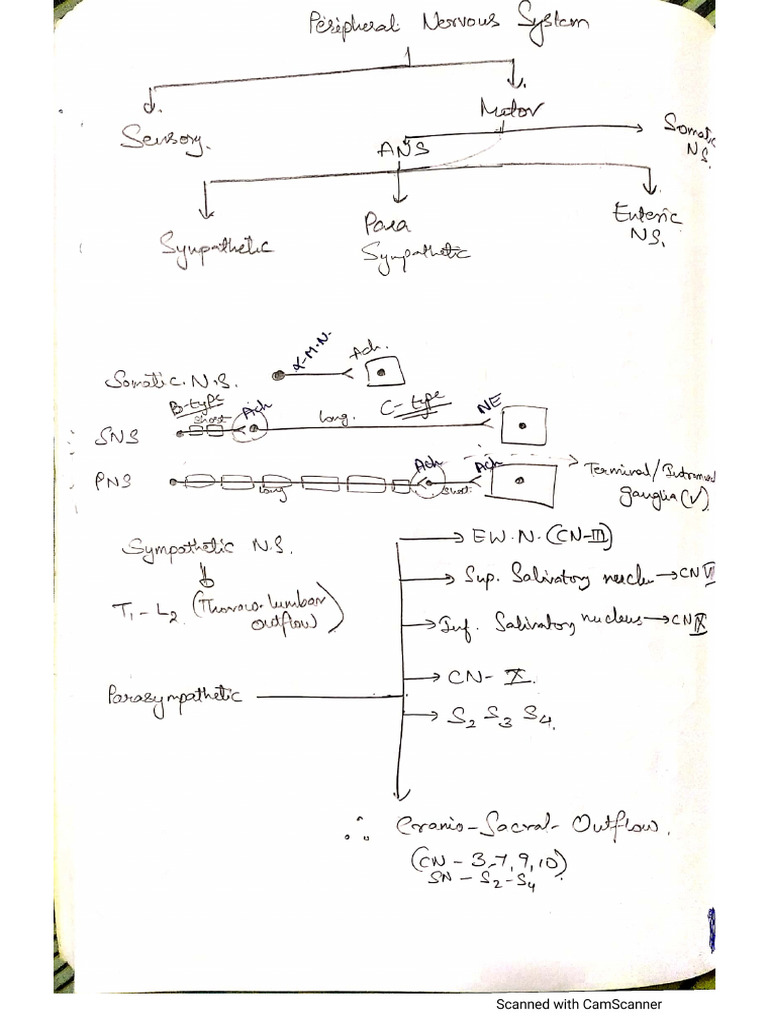 Peripheral Nervous System
Sensory.
Motor
ANS
Somatic
NS.
Sympathetic
Para
Sympathetic
Enteric
NS.
Somatic. N.S.
α-M.N.
Ach.
SNS
B-type
Short
Ach
Long.
C-type
NE
PNS
Long
Ach
Short
Ach
Terminal/Intramural
ganglia (V)
Sympathetic N.S.
T1-L2. (Thoraco-lumbar
outflow)
Parasympathetic
EW.N. (CN-III)
Sup. Salivatory nucleu → CN VII
Inf. Salivatory nucleus → CN IX
CN- X.
S2 S3 S4.
∴ Cranio-Sacral-Outflow.
(CN - 3,7,9,10)
SN - S2-S4.
Scanned with CamScanner